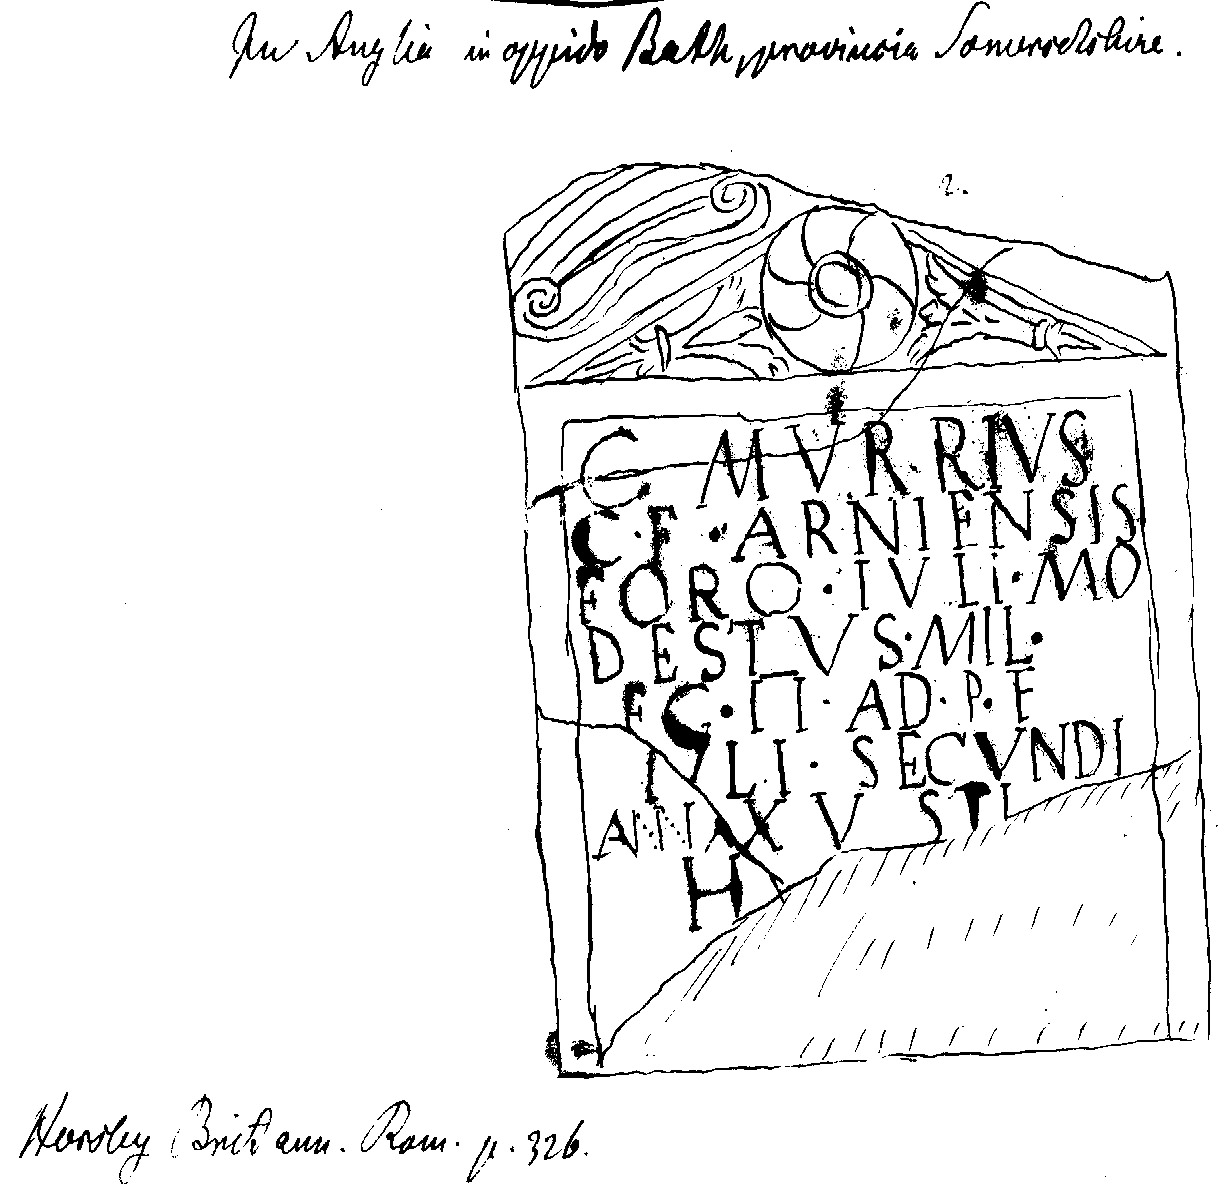 In Anglia in oppido Bath, provincia Somersetshire.
2.
C MVRRIVS
C·F·ARNIENSIS
FORO·IVLI·MO
DESTVS·MIL·
EG·II·AD·P·F
IVLI·SECVNDI
ANNXXV STI
H
Horsley Britann. Rom. p. 326.